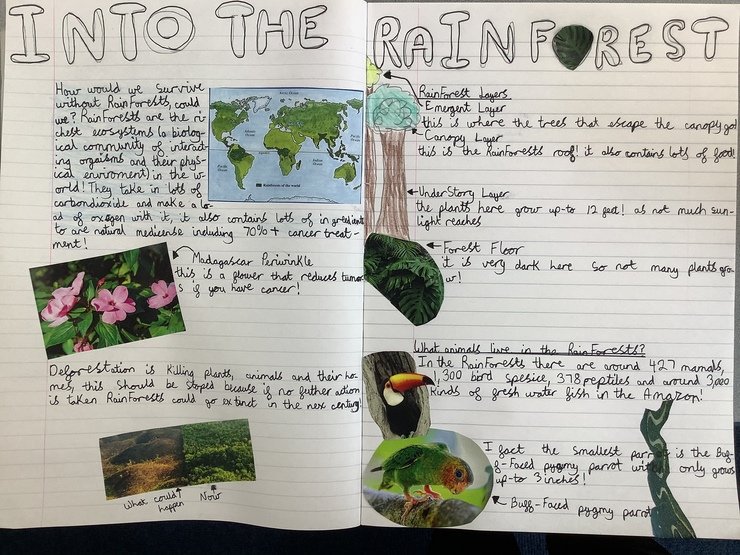 INTO THE RAINFOREST
How would we survive
without RainForests, could
we? RainForests are the ri-
chest ecosystems (a biolog-
ical community of interact-
ing orgaisms and their phys-
ical enviroment) in the w-
orld! They take in lots of
carbondioxide and make a lo-
ad of oxogen with it, it also contains lots of ingredients
to are natural medicense including 70%+ cancer treat-
ment!
Arctic Ocean
Atlantic Ocean
Pacific Ocean
Pacific Ocean
Equator
Indian Ocean
Rainforests of the world
Madagascar Periwinkle
this is a flower that reduces tumor
s if you have cancer!
Deforestation is Killing plants, animals and their ho-
mes, this should be stoped because if no futher action
is taken RainForests could go extinct in the nex century!
What could happen
Now
RainForest Layers
Emergent Layer
this is where the trees that escape the canopy go!
Canopy Layer
this is the RainForests roof! it also contains lots of food!
UnderStory Layer
the plants here grow up-to 12 feet! as not much sun-
light reaches
Forest Floor
it is very dark here so not many plants gro-
w!
What animals live in the RainForests?
In the RainForests there are around 427 mamals,
1,300 bird spesice, 378 reptiles and around 3,000
Kinds of fresh water fish in the Amazon!
I fact the smallest parrot is the Buf-
f-Faced pygmy parrot only grows
up-to 3 inches!
Buff-Faced pygmy parrot